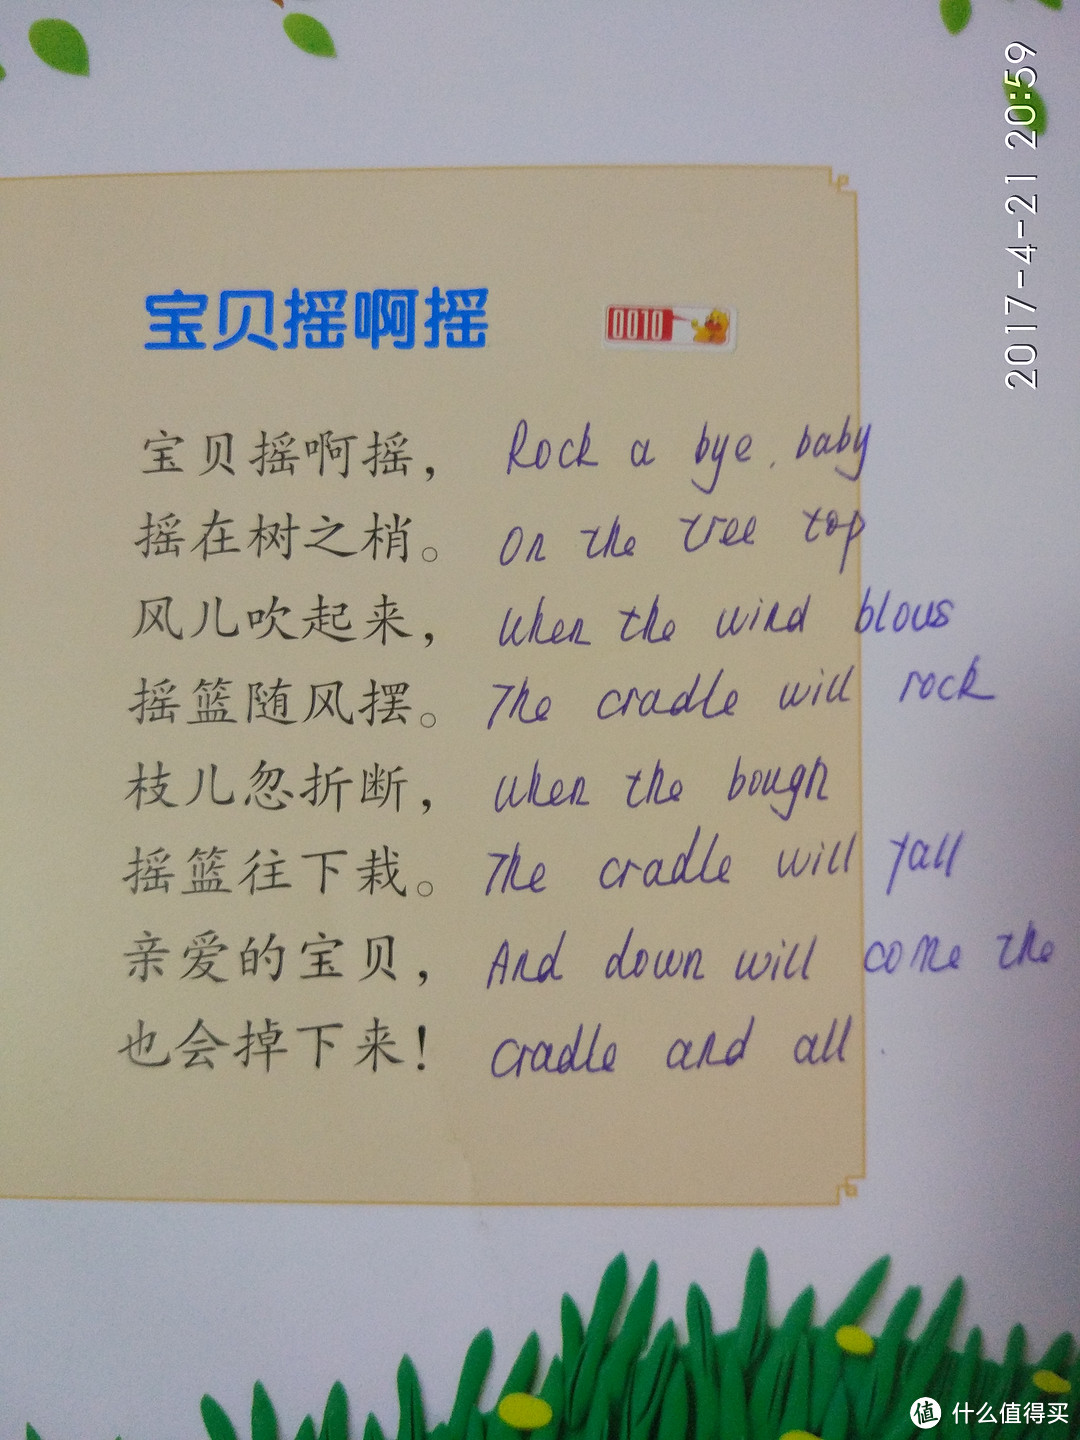 2017-4-21 20:59
宝贝摇啊摇
0010
宝贝摇啊摇， Rock a bye. baby
摇在树之梢。 On the tree top
风儿吹起来， When the wind blows
摇篮随风摆。 The cradle will rock
枝儿忽折断， When the bough
摇篮往下栽。 The cradle will fall
亲爱的宝贝， And down will come the
也会掉下来！ cradle and all.
值 什么值得买